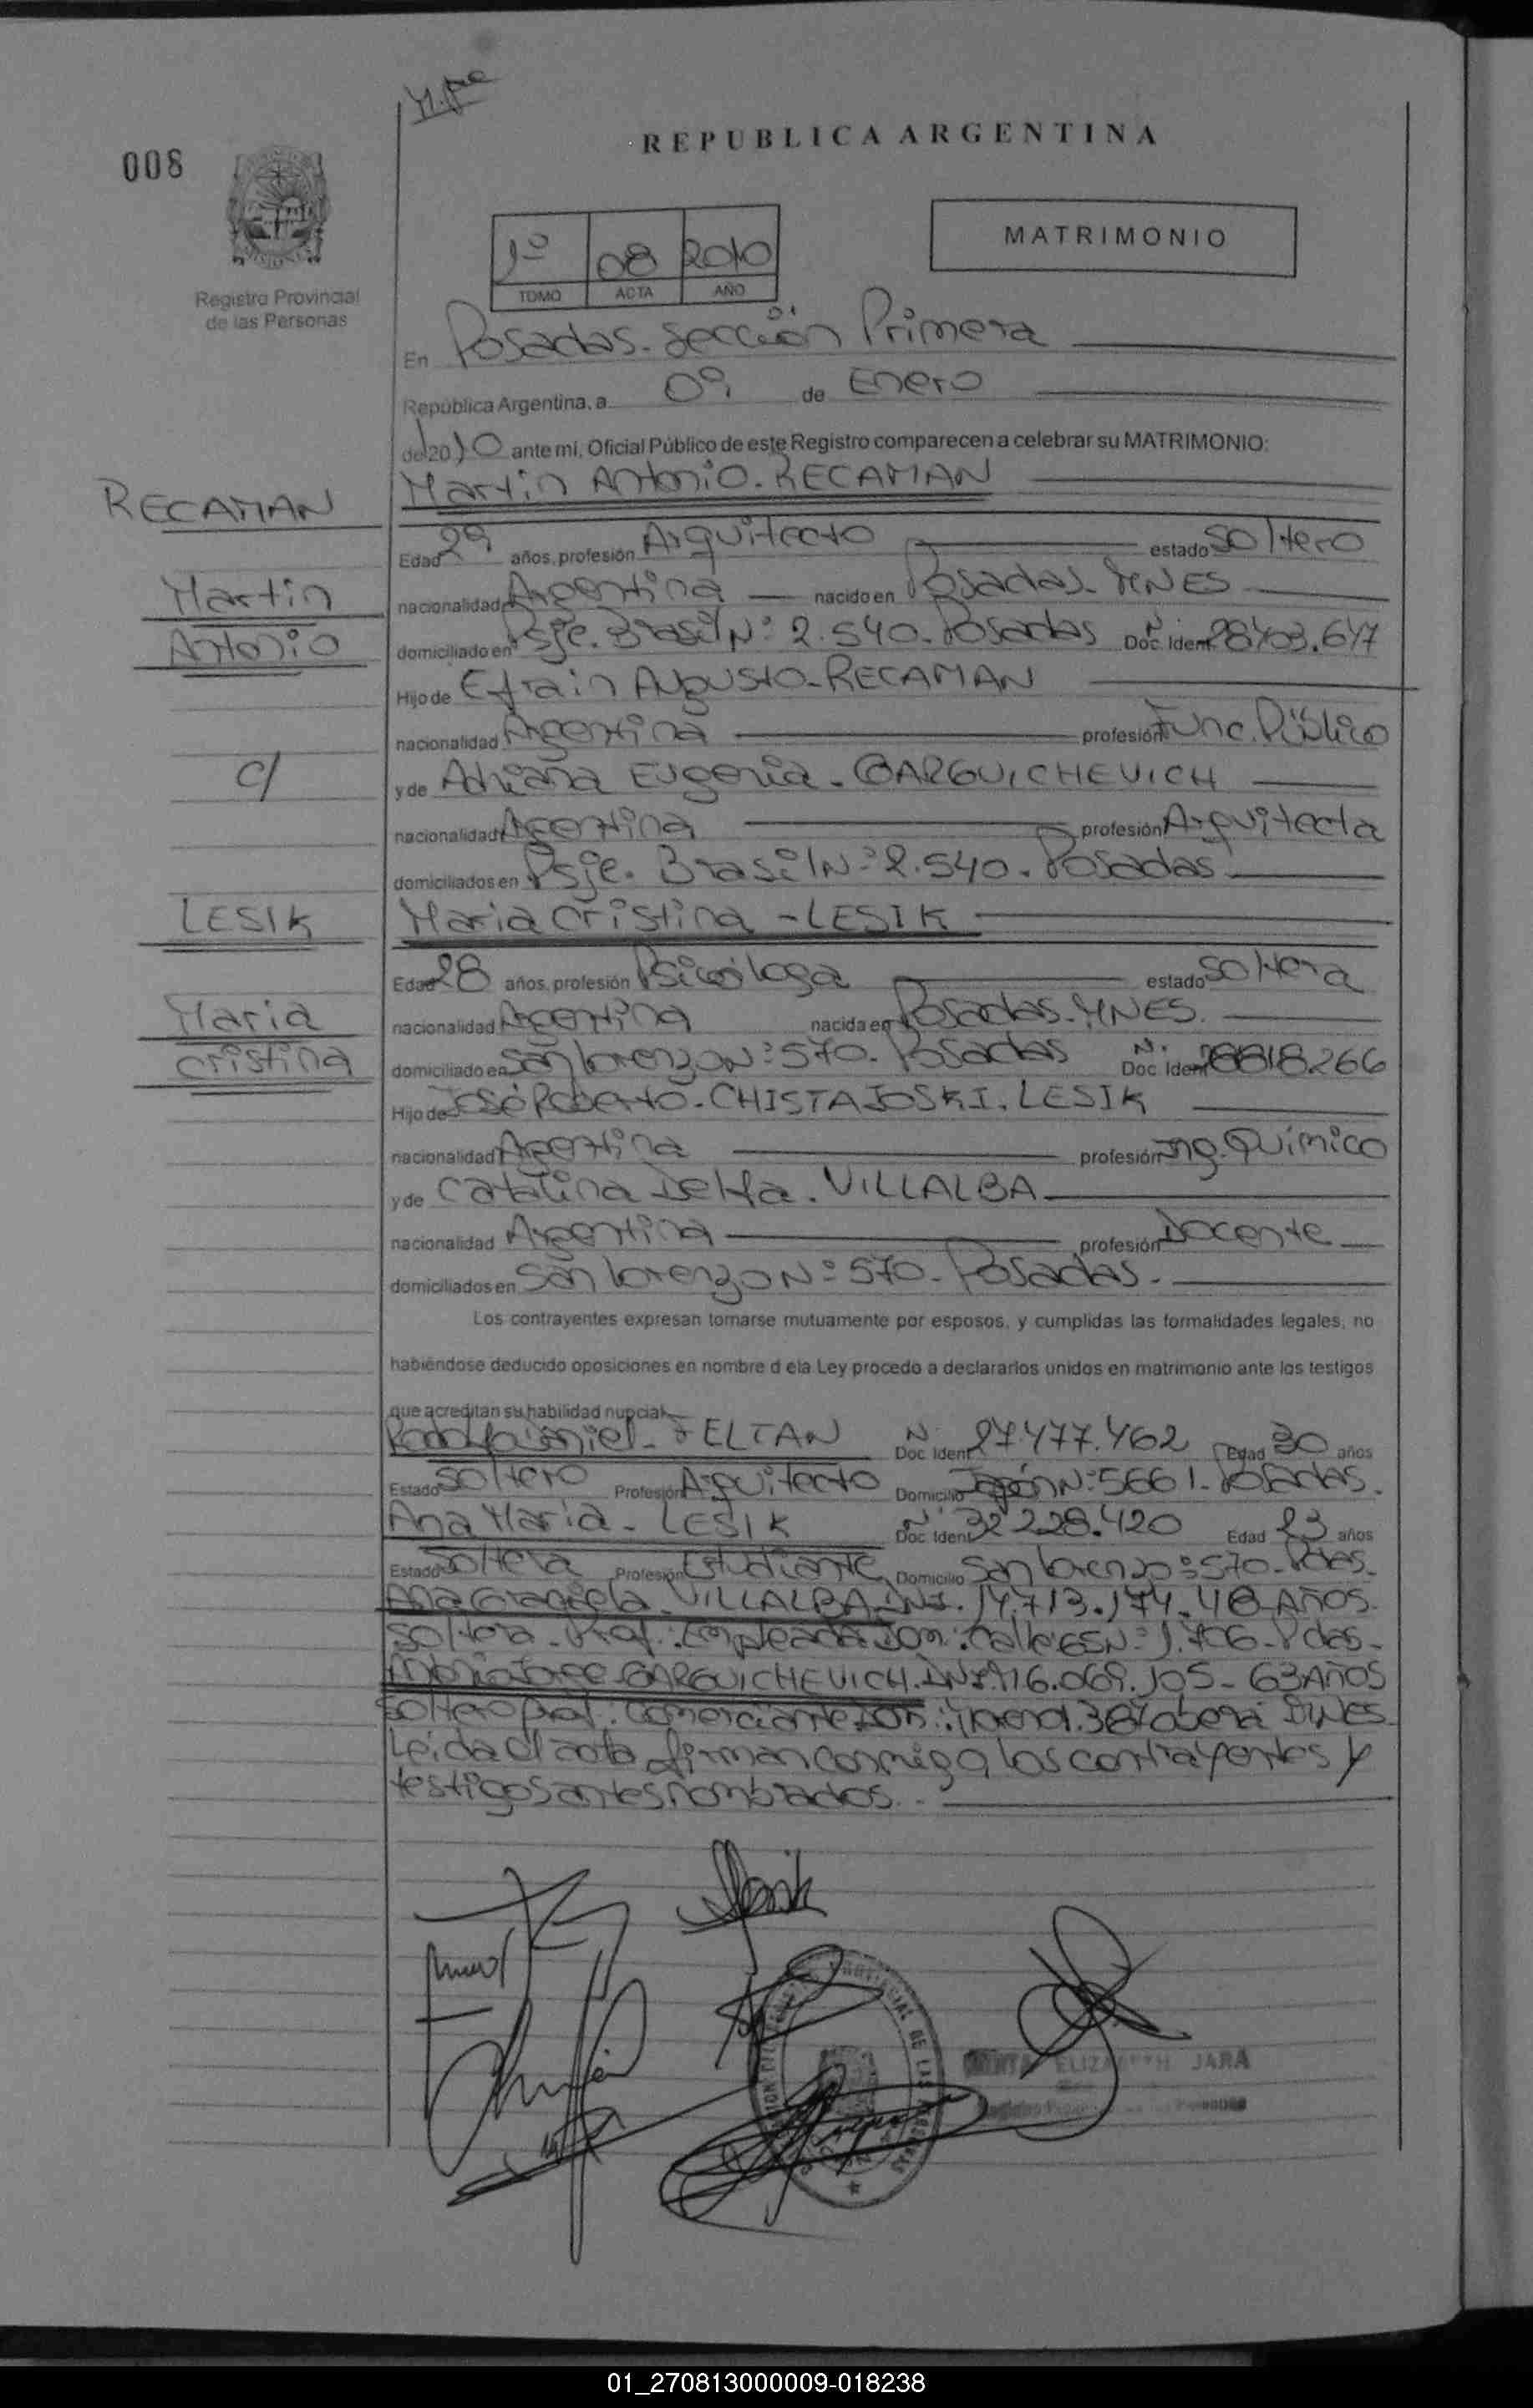 008
REPUBLICA ARGENTINA
MATRIMONIO
1º 08 2010
TOMO ACTA AÑO
Registro Provincial
de las Personas
En Posadas. Sección Primera
República Argentina, a 09 de Enero
del 2010 ante mi, Oficial Público de este Registro comparecen a celebrar su MATRIMONIO:
RECAMAN
Martin Antonio. RECAMAN
Edad 29 años, profesión Arquitecto estado soltero
Martin
nacionalidad Argentina nacido en Posadas. MNES
Antonio
domiciliado en Psje. Brasil Nº 2.540. Posadas Doc. Ident. N. 28.403.647
Hijo de Efrain Augusto. RECAMAN
nacionalidad Argentina profesión Func. Público
c/
y de Adriana Eugenia. GARGUICHEVICH
nacionalidad Argentina profesión Arquitecta
domiciliados en Psje. Brasil Nº 2.540. Posadas
LESIK
Maria Cristina - LESIK
Edad 28 años, profesión Psicóloga estado soltera
Maria
nacionalidad Argentina nacida en Posadas. MNES.
Cristina
domiciliado en San Lorenzo Nº 570. Posadas Doc. Ident. N. 28818.266
Hijo de José Roberto. CHISTAJOSKI. LESIK
nacionalidad Argentina profesión Ing. Químico
y de Catalina Delfa. VILLALBA
nacionalidad Argentina profesión Docente
domiciliados en San Lorenzo Nº 570. Posadas.
Los contrayentes expresan tomarse mutuamente por esposos, y cumplidas las formalidades legales, no
habiéndose deducido oposiciones en nombre d ela Ley procedo a declararlos unidos en matrimonio ante los testigos
que acreditan su habilidad nupcial
FELTAN Doc. Ident. N. 27.477.462 Edad 30 años
Estado soltero Profesión Arquitecto Domicilio Japón Nº 5661. Posadas.
Ana Maria - LESIK Doc. Ident. N. 32.228.420 Edad 23 años
Estado soltera Profesión Estudiante Domicilio San Lorenzo º 570. Pdas.
Ana Graciela. VILLALBA DNI. 14.713.174. 48 AÑOS.
Soltera. Prof.: Empleada Dom: Calle 65 Nº 1.706. Pdas.
GARGUICHEVICH. DNI 16.069.105 - 63 AÑOS
soltero prof: Comerciante Dom: 387 Oberá MNES
Leida el acta firman conmigo los contrayentes y
testigos antes nombrados.
Lesik
ELIZABETH JARA
01_270813000009-018238